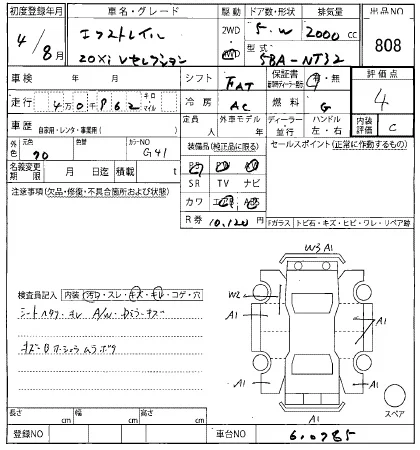 初度登録年月 車名・グレード 駆動 ドア数・形状 排気量 出品NO
4/8月 エクストレイル 2WD 5・W 2000cc 808
20Xi Vセレクション 4WD 型式 5BA-NT32
車検 年 月 日 シフト FAT 保証書 有・無 評価点
走行 4万0千862 キロ マイル 冷房 AC 燃料 G 4
車歴 自家用・レンタ・事業用( ) 車輌 外車モデル 年 ディーラー 並行 ハンドル 左・右 内装評価 C
外色 元色 70 色替 カラーNO G41 装備品(純正品に限る) セールスポイント(正常に作動するもの)
名義変更期限 月 日迄 積載 t SR TV ナビ
注意事項(欠品・修復・不具合箇所および状態) カワ
R券 10,120円 Fガラス トビ石・キズ・ヒビ・ワレ・リペア跡
W3 A1
W2
A1 A1
検査員記入 内装(汚れ・スレ・キズ・キレ・コゲ・穴
シートヨゴレ・キレ A/W・Dミラーキズ
A1 A1
A1
スペア
長さ cm 幅 cm 高さ cm
登録NO 車台NO 6.0785